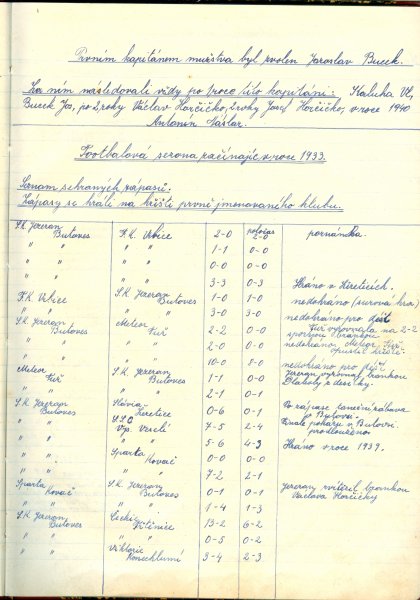 Prvním kapitánem mužstva byl zvolen Jaroslav Bucek.
Za ním následovali vždy po roce tito kapitáni: Kaluha Vl,
Bucek Jos, po 2 roky Václav Horčičko, 2 roky Josef Horčičko, v roce 1940
Antonín
Footbalová sezona začínající v roce 1933.
Seznam sehraných zápasů:
Zápasy se hráli na hřišti první jmenovaného klubu.
S.K. Jezeran Butoves F.K. Vrbice 2-0 poločas 2-0 poznámka.
" " " " 1-1 0-0
" " " " 0-0 0-0
" " " " 3-3 0-3 Hráno v
F.K. Vrbice S.K. Jezeran Butoves 1-0 1-0 nedohráno (surová hra)
" " " " 3-0 3-0 nedohráno pro déšť
S.K. Jezeran Butoves Meteor 2-2 0-0 vyrovnala na 2-2 brankou
" " " " 2-0 0-0 nedohráno, Meteor opustil hřiště
" " " " 10-0 8-0 nedohráno pro déšť.
Meteor S.K. Jezeran Butoves 1-1 0-0 Jezeran vyrovnal brankou z desítky.
" " " " 2-1 0-1
S.K. Jezeran Butoves Slávia 0-6 0-1 Po zápase taneční zábava
" " Veselí 7-5 2-4 Finale poháru v Butovsi prodlouženo
" " " " 5-6 4-3 Hráno v roce 1939.
" " Sparta Kovač 0-0 0-0
" " " " 7-2 2-1
Sparta Kovač S.K. Jezeran Butoves 0-1 0-1 Jezeran zvítězil brankou Václava Horčičky
" " " " 1-4 1-3
S.K. Jezeran Butoves 13-2 6-2
" " " " 0-5 0-2
" " Viktorie Konecchlumí 3-4 2-3